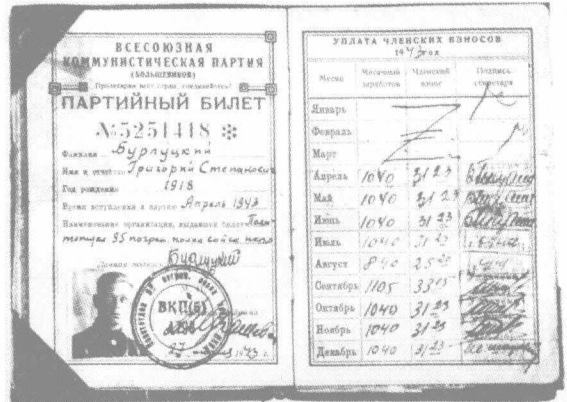 ВСЕСОЮЗНАЯ
КОММУНИСТИЧЕСКАЯ ПАРТИЯ
(БОЛЬШЕВИКОВ)
Пролетарии всех стран, соединяйтесь!
ПАРТИЙНЫЙ БИЛЕТ
№5251418
Фамилия Бурлуцкий
Имя и отчество Григорий Степанович
Год рождения 1918
Время вступления в партию Апрель 1943
Наименование организации, выдавшей билет Поли-
тотдел 95 погран. полка войск НКВД
ВКП(б)
27 1943 г.
УПЛАТА ЧЛЕНСКИХ ВЗНОСОВ
1943 год
Месяц Месячный заработок Членский взнос Подпись секретаря
Январь
Февраль
Март
Апрель 1040 31 23
Май 1040 31 23
Июнь 1040 31 23
Июль 1040 31 23
Август 840 25 20
Сентябрь 1105 33 05
Октябрь 1040 31 23
Ноябрь 1040 31 23
Декабрь 1040 31 23